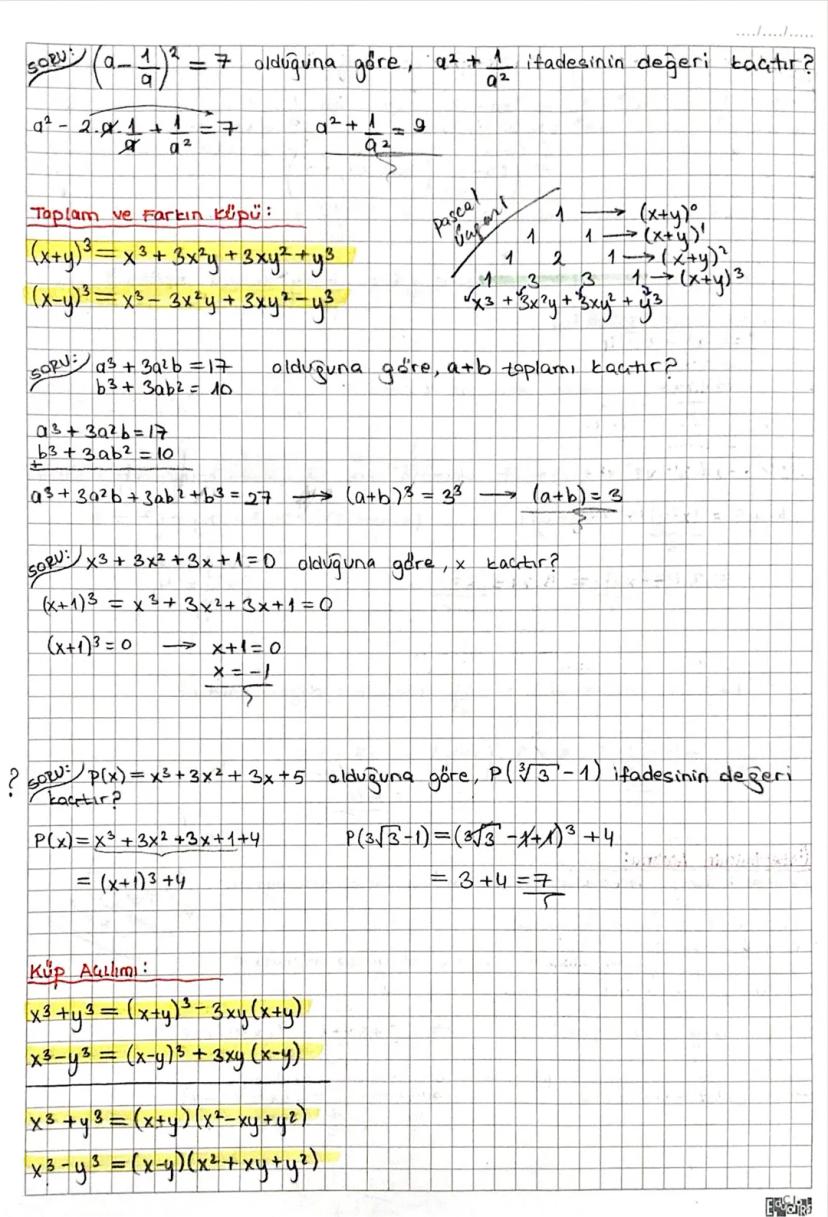 ...../...../.....
SORU: (a - 1/a)² = 7 olduğuna göre, a² + 1/a² ifadesinin değeri kaçtır?
a² - 2.a.1/a + 1/a² = 7    a² + 1/a² = 9
Toplam ve Farkın Küpü:
(x+y)³ = x³ + 3x²y + 3xy² + y³
(x-y)³ = x³ - 3x²y + 3xy² - y³
pascal üçgeni
1 → (x+y)⁰
1 1 → (x+y)¹
1 2 1 → (x+y)²
1 3 3 1 → (x+y)³
x³ + 3x²y + 3xy² + y³
SORU: a³ + 3a²b = 17 olduğuna göre, a+b toplamı kaçtır?
b³ + 3ab² = 10
a³ + 3a²b = 17
+ b³ + 3ab² = 10
a³ + 3a²b + 3ab² + b³ = 27 → (a+b)³ = 3³ → (a+b) = 3
SORU: x³ + 3x² + 3x + 1 = 0 olduğuna göre, x kaçtır?
(x+1)³ = x³ + 3x² + 3x + 1 = 0
(x+1)³ = 0 → x+1 = 0
x = -1
? SORU: P(x) = x³ + 3x² + 3x + 5 olduğuna göre, P(∛3 - 1) ifadesinin değeri
kaçtır?
P(x) = x³ + 3x² + 3x + 1 + 4    P(3√3 - 1) = (3√3 - 1 + 1)³ + 4
= (x+1)³ + 4    = 3 + 4 = 7
Küp Açılımı:
x³ + y³ = (x+y)³ - 3xy(x+y)
x³ - y³ = (x-y)³ + 3xy(x-y)
x³ + y³ = (x+y)(x² - xy + y²)
x³ - y³ = (x-y)(x² + xy + y²)